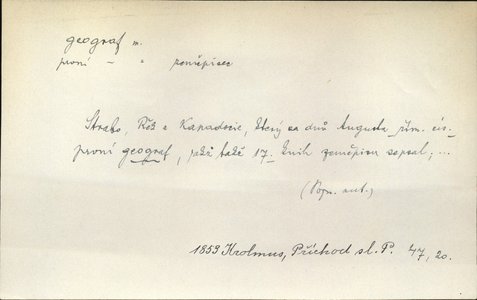 geograf m.
první – " zeměpisec
Strabo, Řek z Kapadocie, který za dnů Augusta, řím. cís.
první geograf, jakž také 17. knih zeměpisu sepsal; ...
(Pozn. aut.)
1853 Krolmus, Příchod sl. P. 47, 20.